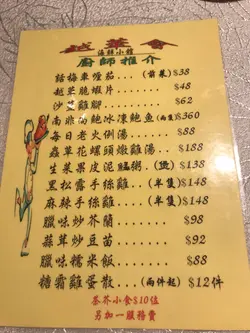 越菜舍
海鮮小館
廚師推介
話梅車厘茄...(前菜)$38
越菜脆蝦片.......$48
沙荳雞腳........$62
南非湯鮑冰凍鮑魚(兩隻)$360
每日老火俐湯.....$88
蟲草花螺頭燉雞湯..$88
生菜果皮泥鯭粥.(煲)$138
黑松露手絲雞.(半隻)$148
麻辣手絲雞..(半隻)$148
臘味炒芥蘭.....$98
蒜茸炒豆苗.....$92
臘味糯米飯.....$88
糖霜雞蛋散..(兩件起)$12件
茶芥小食$10位
另加一服務費